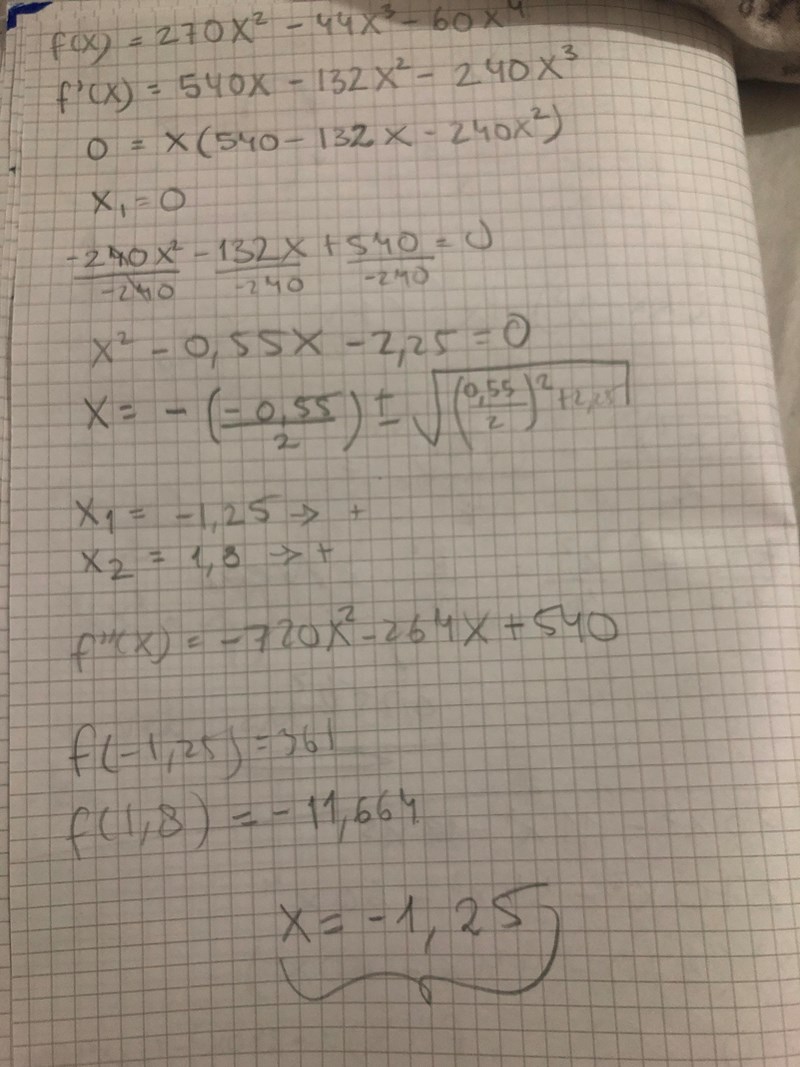 f(x) = 270x² - 44x³ - 60x⁴
f'(x) = 540x - 132x² - 240x³
0 = x(540 - 132x - 240x²)
x₁ = 0
-240x²/-240 - 132x/-240 + 540/-240 = 0
x² - 0,55x - 2,25 = 0
x = - (-0,55/2) ± √((0,55/2)² + 2,25)
x₁ = -1,25 → +
x₂ = 1,8 → +
f''(x) = -720x² - 264x + 540
f(-1,25) = 361
f(1,8) = -11,664
x = -1,25